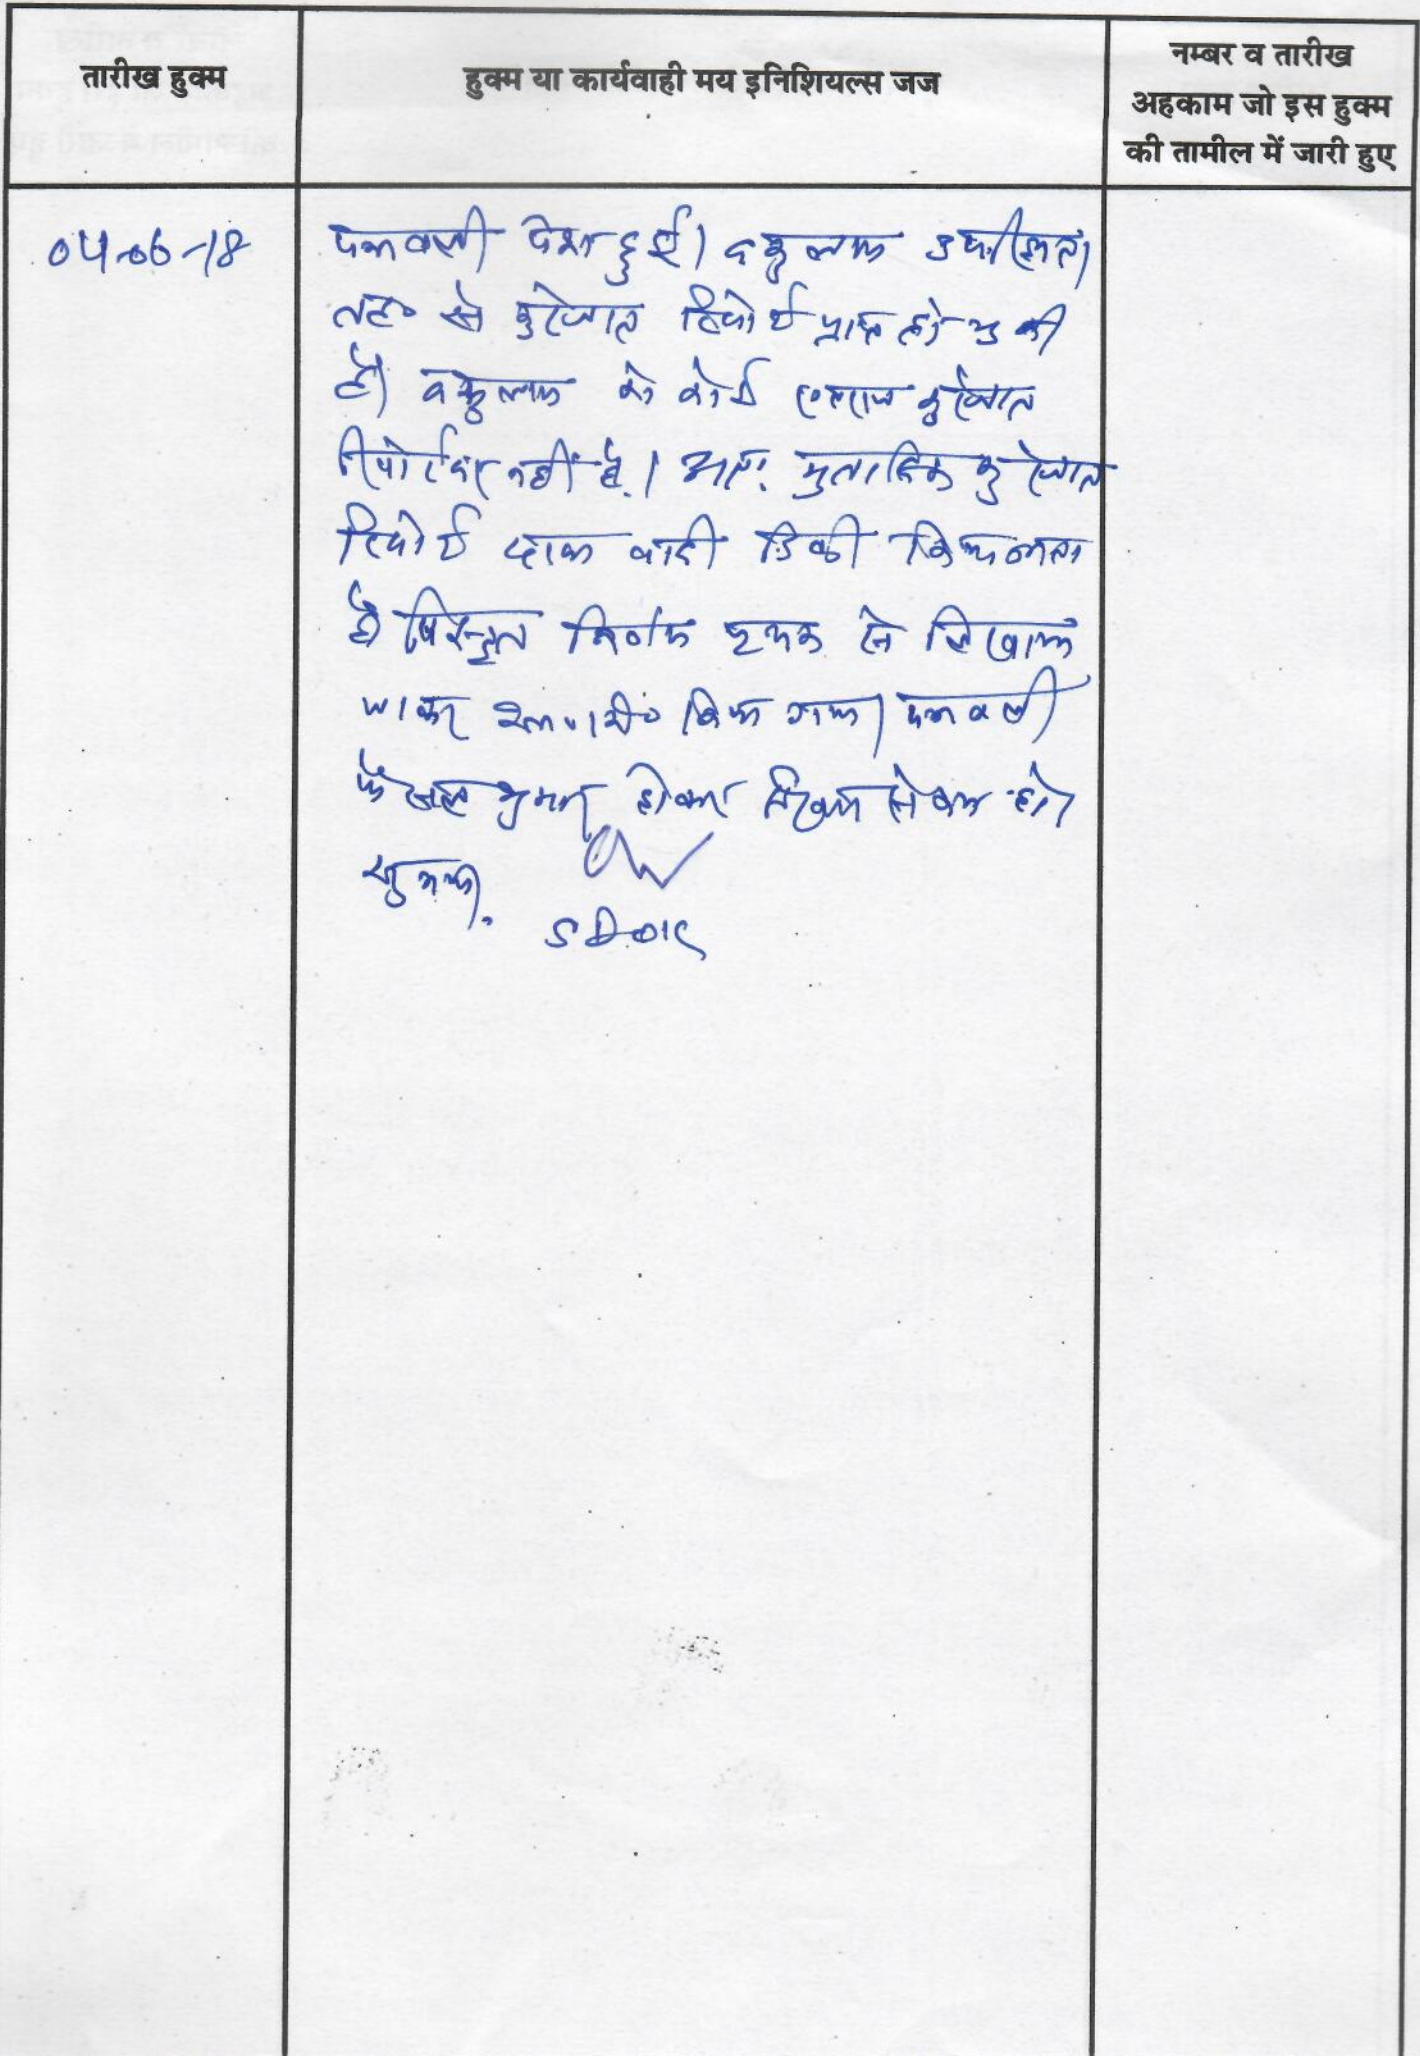 तारीख हुक्म
हुक्म या कार्यवाही मय इनिशियल्स जज
नम्बर व तारीख
अहकाम जो इस हुक्म
की तामील में जारी हुए
04-06-18
पत्रावली पेश हुई। वकुलाय उपस्थित।
तह० से कुरेजात रिपोर्ट प्राप्त हो चुकी
है। वकुलाय को कोई एतराज कुरेजात
रिपोर्ट पर नहीं है। अतः मुताबिक कुरेजात
रिपोर्ट वादी डिक्री किया जाता
है। विस्तृत निर्णय पृथक से लिखाया
जाकर किया गया। पत्रावली
फैसल शुमार होकर हो।